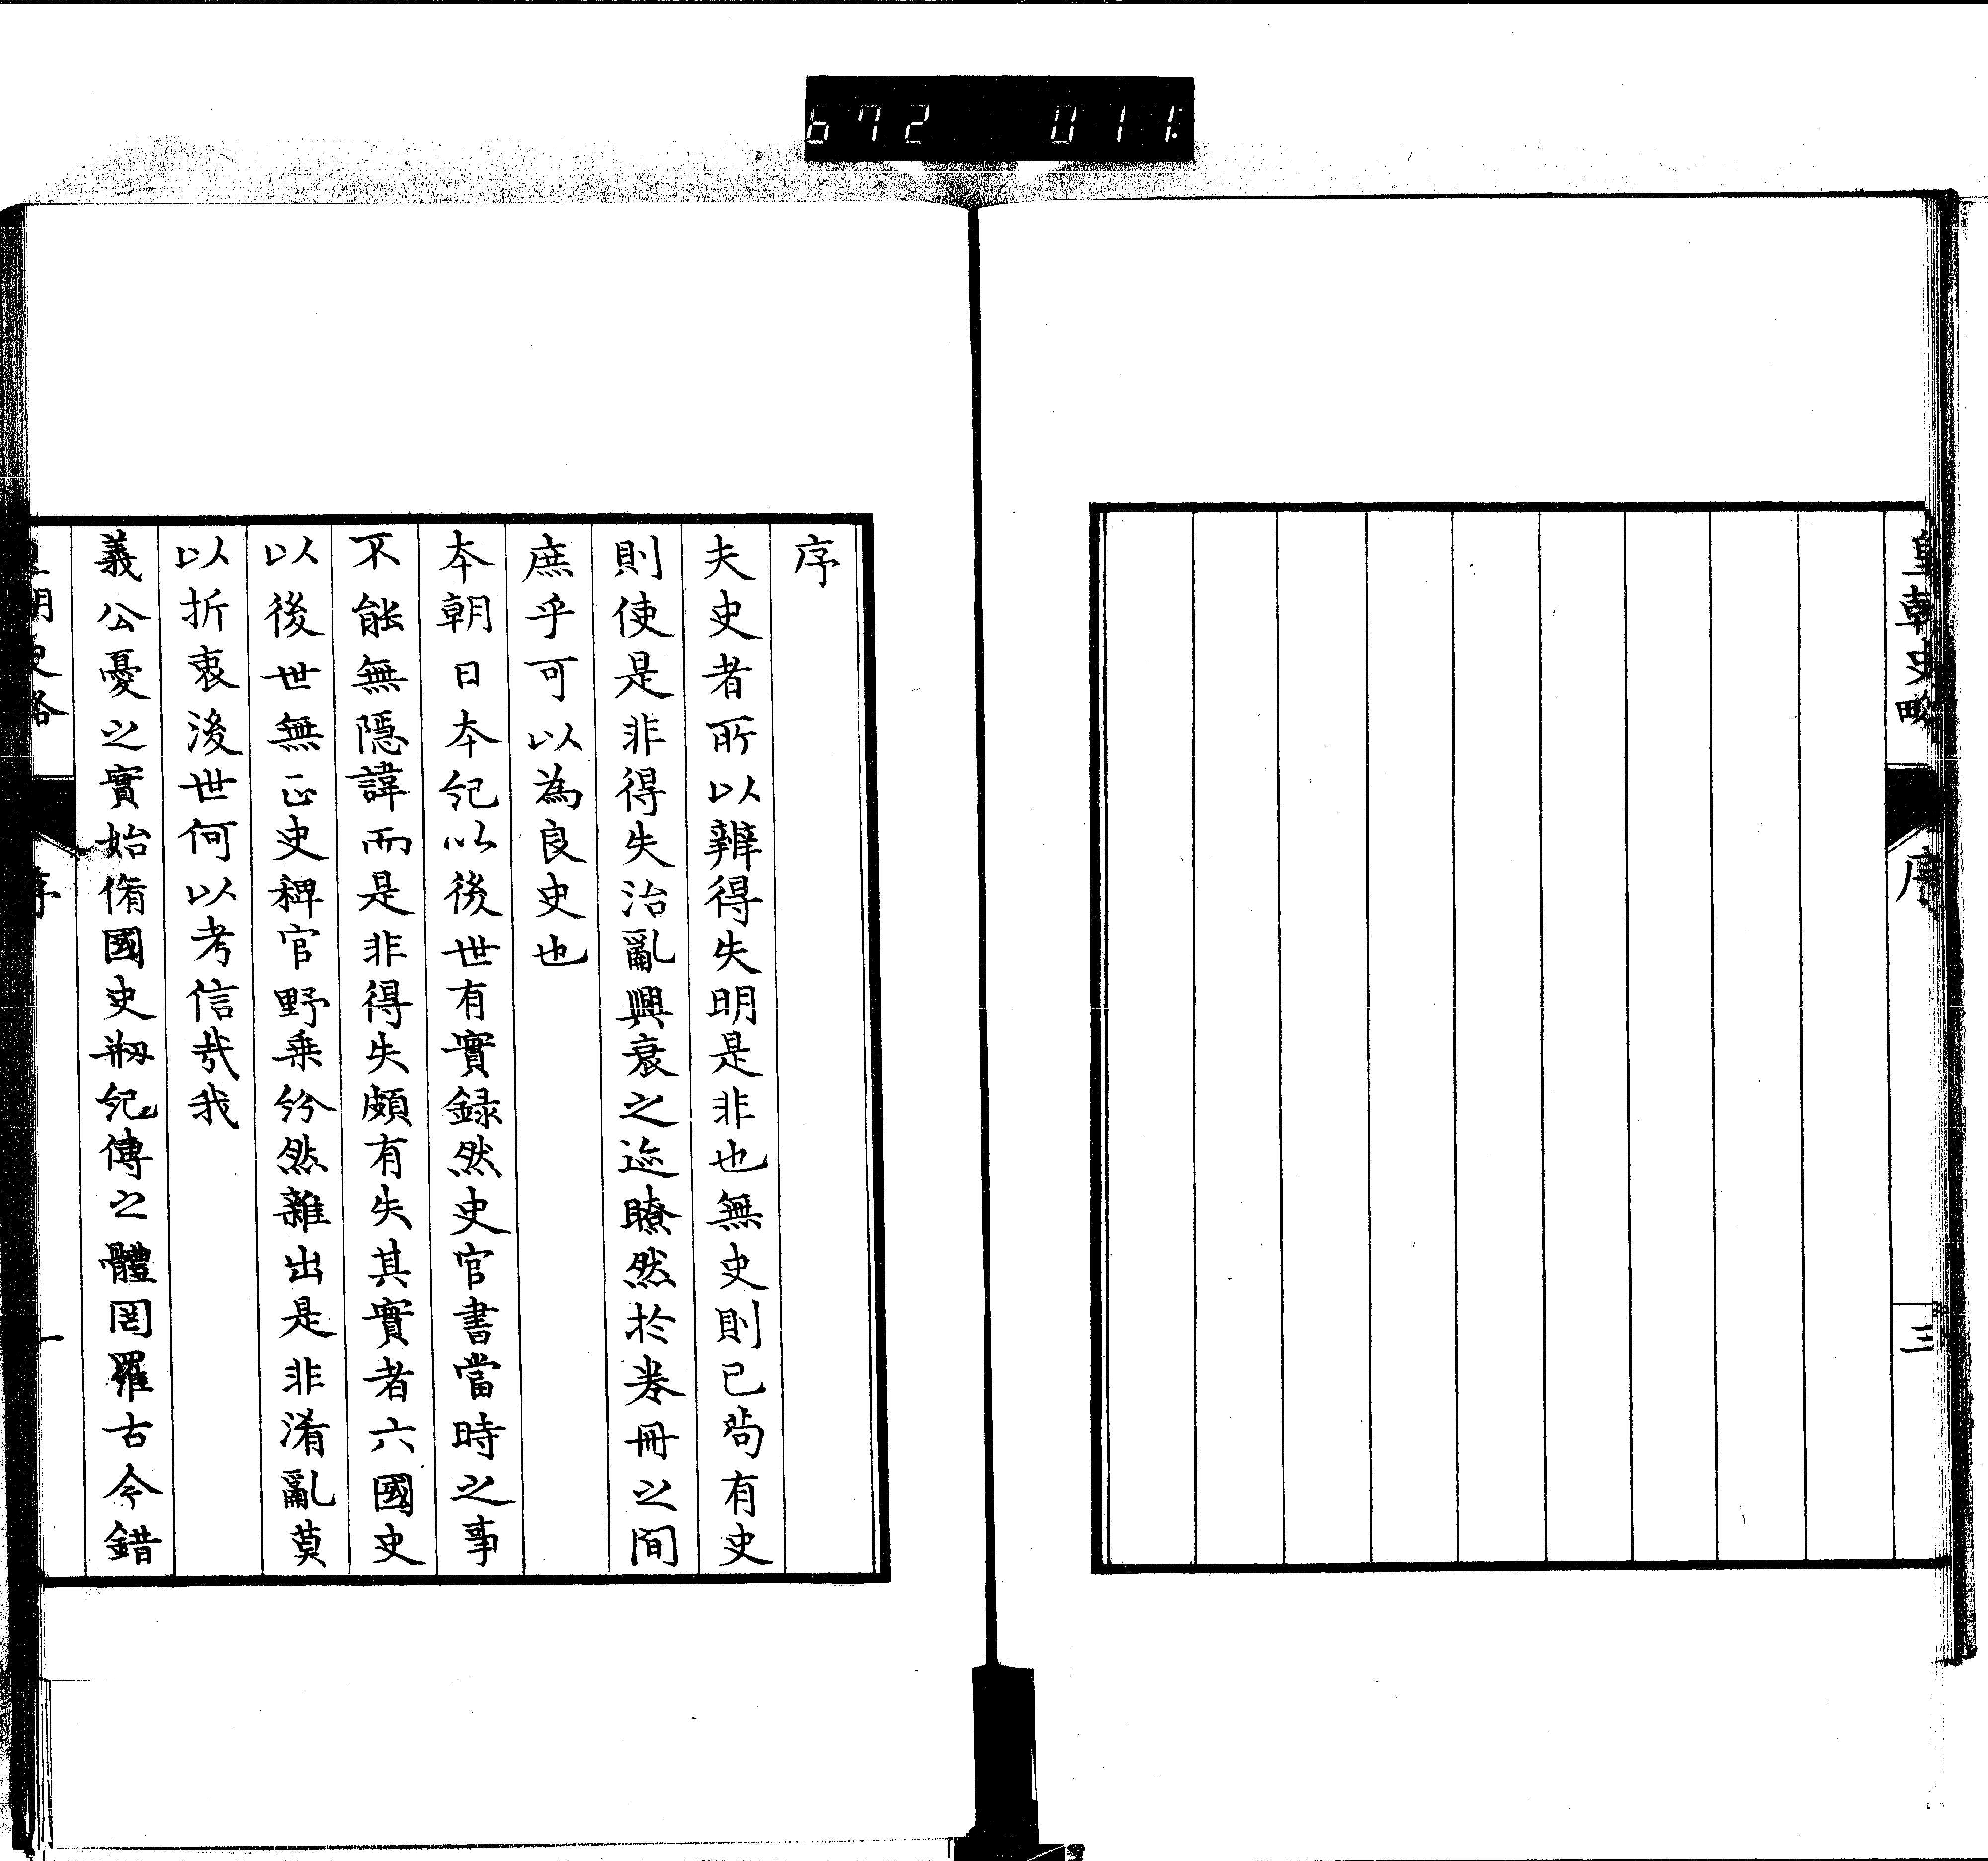 672 011
皇朝史略
序
三
序
夫史者所以辨得失明是非也無史則已苟有史
則使是非得失治亂興衰之迹瞭然於卷冊之間
庶乎可以為良史也
本朝日本紀以後世有實録然史官書當時之事
不能無隱諱而是非得失頗有失其實者六國史
以後世無正史稗官野乗紛然雜出是非淆亂莫
以折衷後世何以考信哉我
義公憂之實始脩國史刱紀傳之體罔羅古今錯
朝史略
序
一